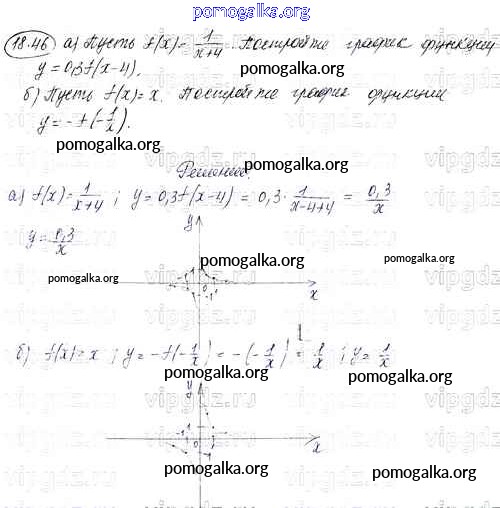 pomogalka.org
18.46 а) Пусть f(x) = 1/(x+4). Постройте график функции
y = 0,3f(x-4). pomogalka.org
б) Пусть f(x) = x. Постройте график функции
pomogalka.org
y = -f(-1/x).
pomogalka.org
Решение. pomogalka.org
а) f(x) = 1/(x+4) ; y = 0,3f(x-4) = 0,3 · 1/(x-4+4) = 0,3/x
pomogalka.org
y = 0,3/x y
pomogalka.org pomogalka.org
pomogalka.org
0 1 x
б) f(x) = x ; y = -f(-1/x) = -(-1/x) = 1/x ; y = 1/x
pomogalka.org pomogalka.org
y
pomogalka.org
0 1 x
pomogalka.org pomogalka.org